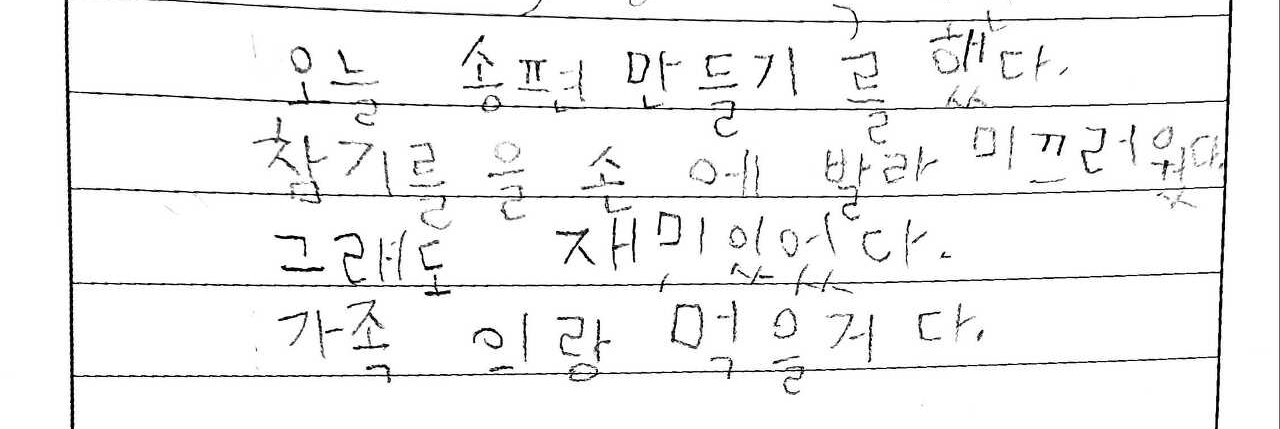 오늘 송편 만들기를 했다.
참기름을 손에 발라 미끄러웠다.
그래도 재미있었다.
가족이랑 먹을거다.